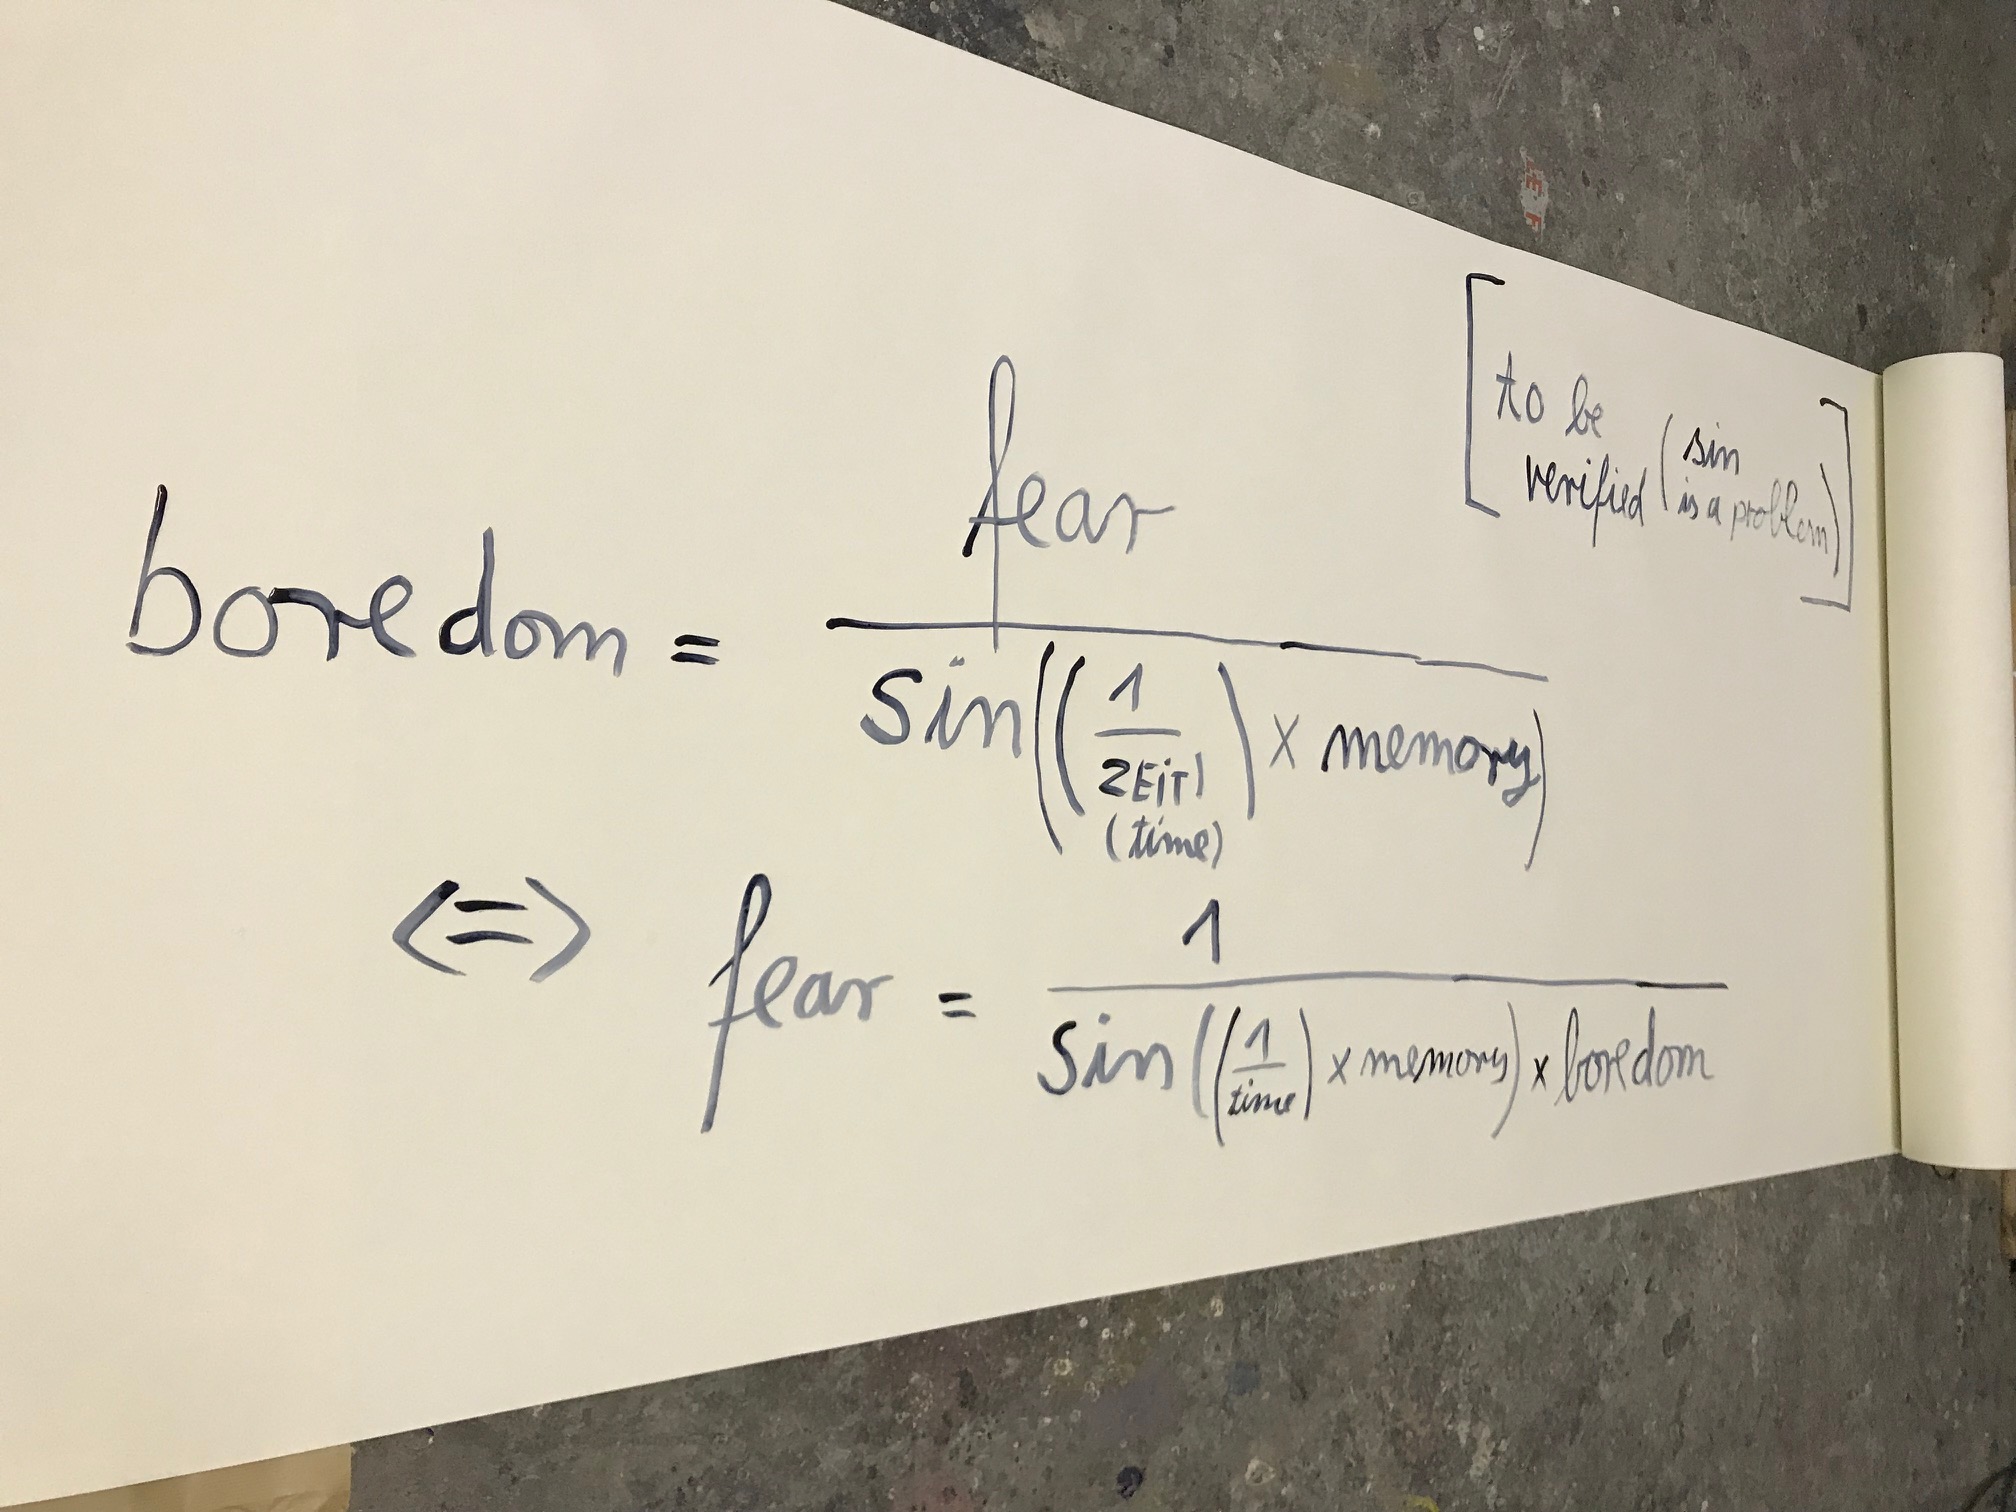 [to be
verified (sin
is a problem)]
boredom = fear / sin((1/ZEiT) x memory)
(time)
<=> fear = 1 / sin((1/time) x memory) x boredom